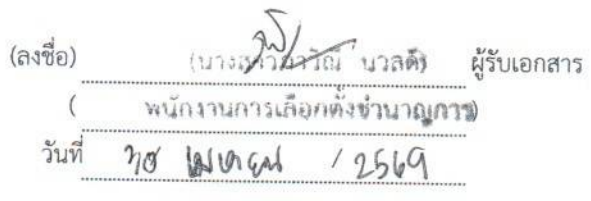 (ลงชื่อ) (นาง นวลดี) ผู้รับเอกสาร
( พนักงานการเลือกตั้งชำนาญการ)
วันที่ เมษายน / 2569